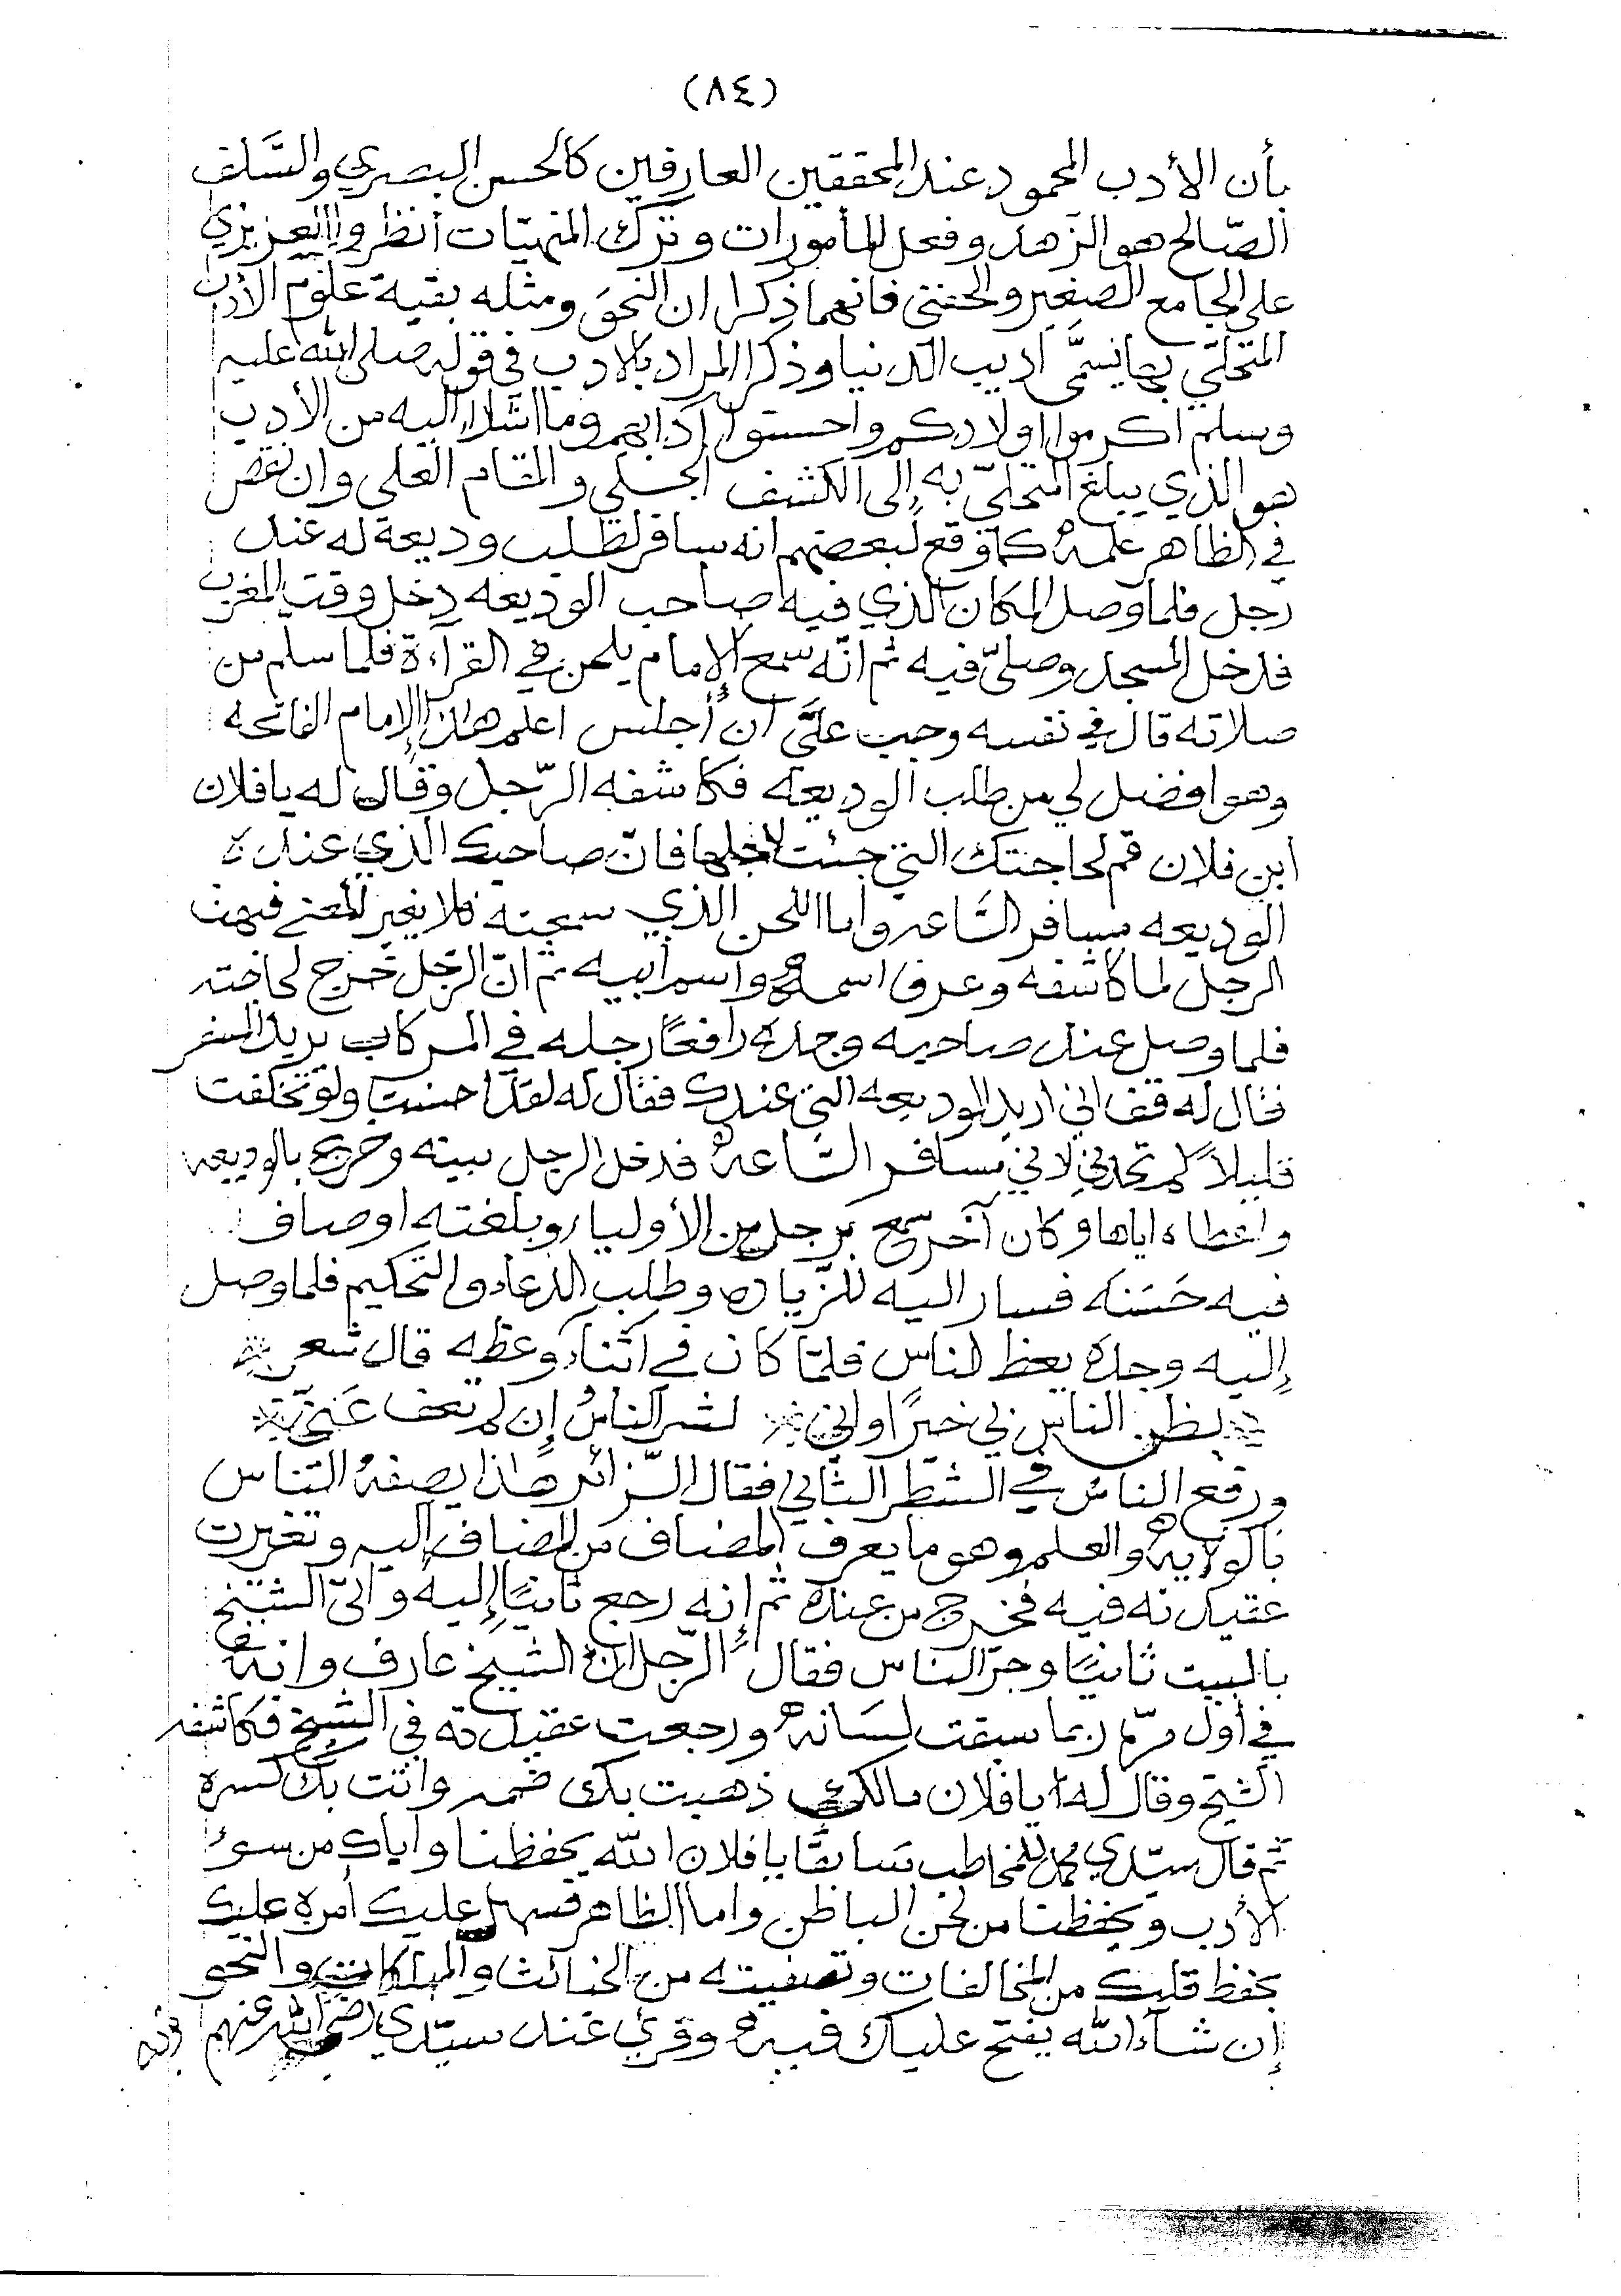 (٨٤)
بأن الأدب المحمود عند المحققين العارفين كالحسن البصري والسَّلف
الصّالح هو الزهد وفعل المأمورات وترك المنهيّات أنظروا العزيزي
على الجامع الصغير والحفني فانهما ذكرا ان النحو ومثله بقية علوم الأدب
المتحلّي بها يسمَّى أديب الدنيا وذكرا المراد بالادب في قوله صلى الله عليه
وسلم اكرموا اولادكم واحسنوا آدابهم وما اشار اليه من الأدب
هو الذي يبلغ المتحلّي به إلى الكشف الجلي والمقام العلي وان نقص
في الظاهر علمه كما وقع لبعضهم انه سافر لطلب وديعة له عند
رجل فلما وصل المكان الذي فيه صاحب الوديعه دخل وقت المغرب
فدخل المسجد وصلىّ فيه ثم انّه سمع الإمام يلحن في القراءة فلما سلم من
صلاته قال في نفسه وجب علىَّ أن أجلس اعلم هاذا الإمام الفاتحه
وهو افضل لي من طلب الوديعه فكاشفه الرّجل وقال له يا فلان
ابن فلان قم لحاجتك التي جئت لاجلها فانّ صاحبك الذي عنده
الوديعه مسافر السَّاعه واما اللحن الذي سمعته فلا يغير المعنى فبهت
الرجل لما كاشفه وعرف اسمه واسم أبيه ثم انّ الرّجل خرج لحاجته
فلما وصل عند صاحبه وجده رافعًا رجله في المركاب يريد السفر
فقال له قف اني اريد الوديعه التي عندك فقال له لقد احسنت ولو تخلفت
قليلاً لم تجدني لاني مسافر السَّاعه فدخل الرجل بيته وخرج بالوديعه
واعطاه اياها وكان آخر سمع برجل من الأولياء وبلغته اوصاف
فيه حَسَنَه فسار اليه للزّياره وطلب الدعاء والتحكيم فلما وصل
إليه وجده يعظ الناس فلمّا كان في اثناء وعظه قال شعر
يظن الناس بي خيرًا واني لشر الناسُ إن لم تعف عَنّي
ورفع الناسُ في الشطر الثاني فقال الزّائر هاذا يصفه النّاس
بالولايه والعلم وهو ما يعرف المضاف من المضاف إليه وتغيرت
عقيدته فيه فخرج من عنده ثم إنه رجع ثانيًا إليه وأتى الشيخ
بالبيت ثانيًا وجرّ الناس فقال الرّجل انّ الشيخ عارف وانّه
في أول مرّه ربما سبقت لسَانه ورجعت عقيدته في الشيخ فكاشفه
الشيخ وقال له يا فلان مالك ذهبت بك ضمه واتت بك كسره
ثم قال سيّدي محمد للمخاطب سَابقًا يا فلان الله يحفظنا واياك من سوء
الأدب ويحفظنا من لحن الباطن واما الظاهر فسهل عليك أمره عليك
بحفظ قلبك من المخالفات وتصفيته من الخبائث والنحو
إن شاء الله يفتح عليك فيه وقرئ عند سيّدي رضي الله عنهم